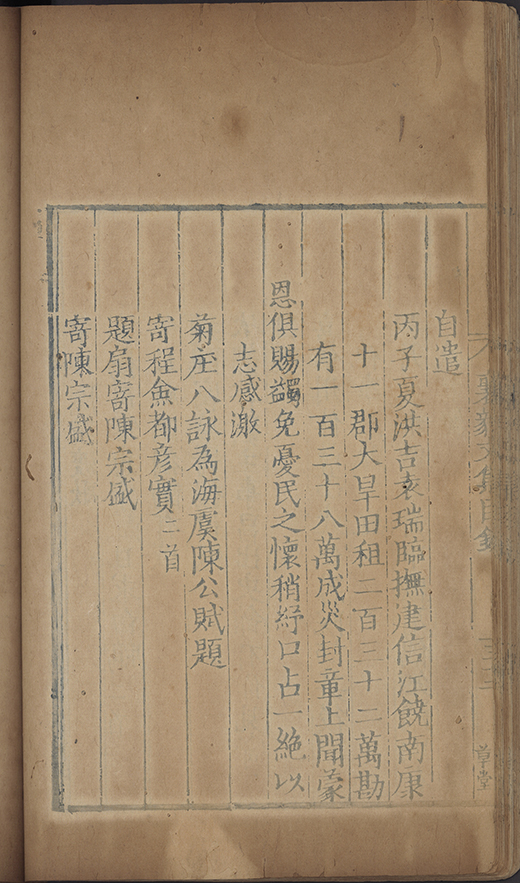 自遣
丙子夏洪吉袁瑞臨撫建信江饒南康
十一郡大旱田租二百三十二萬勘
有一百三十八萬成災封章上聞蒙
恩俱賜蠲免憂民之懷稍紓口占一絕以
志感激
菊庄八詠為海虞陳公賦題
寄程僉都彥實二首
題扇寄陳宗盛
寄陳宗盛
草堂